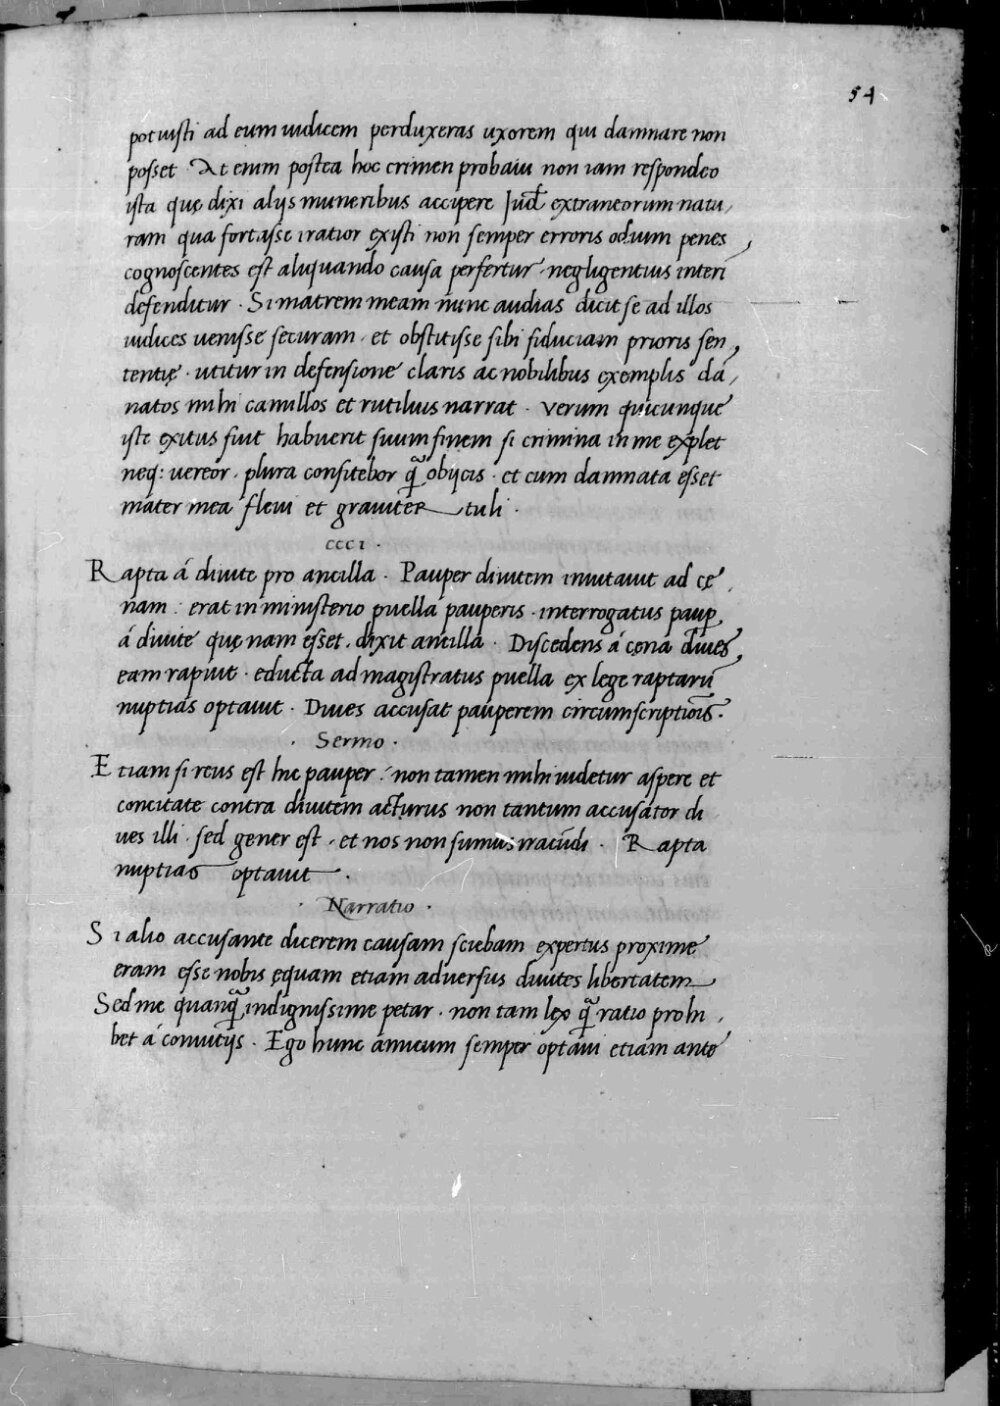 54
potuisti ad eum iudicem perduxeras uxorem qui damnare non
posset At enim postea hoc crimen probaui non iam respondeo
ista quę dixi alijs muneribus accipere Iud extraneorum natu,
ram qua fortasse iratior existi non semper erroris odium penes,
cognoscentes est aliquando causa perfertur. negligentius interī
defenditur. Si matrem meam nunc audias dicit se ad illos
iudices uenisse securam. et obstitisse sibi fiduciam prioris sen,
tentię. utitur in defensione claris ac nobilibus exemplis dā,
natos mihi camillos et rutilius narrat. Verum quicunque
iste exitus fuit habuerit suum finem si crimina in me explet
neq: uereor. plura confitebor q̃ obijcis. et cum damnata esset
mater mea fleui et grauiter tuli.
ccc1.
Rapta á diuite pro ancilla. Pauper diuitem inuitauit ad cę,
nam: erat in ministerio puella pauperis. interrogatus paup,
á diuite quę nam esset. dixit ancilla. Discedens á cęna diues,
eam rapuit. educta ad magistratus puella ex lege raptarū
nuptias optauit. Diues accusat pauperem circumscriptiōis.
. Sermo.
Etiam si reus est hic pauper. non tamen mihi uidetur aspere et
concitate contra diuitem acturus non tantum accusator di
ues illi. sed gener est. et nos non sumus iracūdi. Rapta
nuptias optauit.
. Narratio.
Si alio accusante dicerem causam sciebam expertus proxime
eram esse nobis ęquam etiam aduersus diuites libertatem
Sed me quanq̃, indignissime petar. non tam lex q̃ ratio prohi,
bet á conuitijs. Ego hunc amicum semper optaui etiam ante